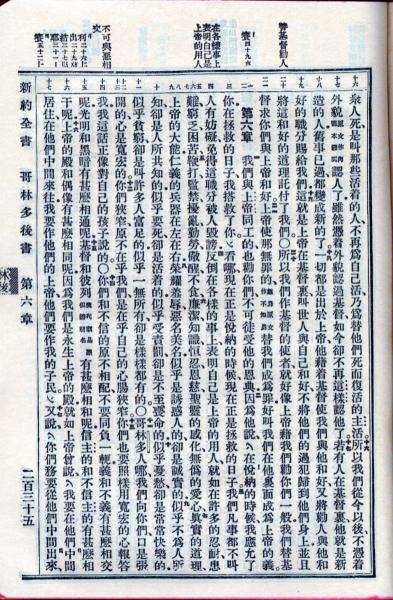 替基督勸人
賽四十九章
在各樣事上
表明自己是
上帝的用人
不可與惡相
交
衆人死是叫那些活着的人不再爲自己活乃爲替他們死而復活的主活所以我們從今以後不憑着
外貌認人了雖然憑着外貌認過基督如今卻不再這樣認他了若有人在基督裏他就是新
造的人舊事已過都變成新的了一切都是出於上帝他藉着基督使我們與他和好又將勸人與他和
好的職分賜給我們這就是上帝在基督裏叫世人與自己和好不將他們的過犯歸到他們身上並且
將這和好的道理託付了我們〇所以我們作基督的使者就好像上帝藉我們勸你們一般我們替基
督求你們與上帝和好上帝使那無罪的替我們成爲罪好叫我們在他裏面成爲上帝的義
第六章 我們與上帝同工的也勸你們不可徒受他的恩典因爲他說在悅納的時候我應允了
你在拯救的日子我搭救了你看哪現在正是悅納的時候現在正是拯救的日子我們凡事都不叫
人有妨礙免得這職分被人毀謗反倒在各樣的事上表明自己是上帝的用人就如在許多的忍耐患
難窮乏困苦鞭打監禁擾亂勤勞儆醒不食廉潔知識恒忍恩慈聖靈的感化無僞的愛心真實的道理
上帝的大能仁義的兵器在左在右榮耀羞辱惡名美名似乎是誘惑人的卻是誠實的似乎不爲人所
知卻是人所共知的似乎要死卻是活着的似乎受責罰卻是不至喪命的似乎憂愁卻是常常快樂的
似乎貧窮卻是叫許多人富足的似乎一無所有卻是樣樣都有的〇哥林多人哪我們向你們口是張
開的心是寬宏的你們狹窄原不在乎我們是在乎自己的心腸狹窄你們也要照樣用寬宏的心報答
我我這話正像對自己的孩子說的〇你們和不信的原不相配不要同負一軛義和不義有甚麽相交
呢光明和黑暗有甚麽相通呢基督和彼列有甚麽相和呢信主的和不信主的有甚麽相
干呢上帝的殿和偶像有甚麽相同呢因爲我們是永生上帝的殿就如上帝曾說我要在他們中間
居住在他們中間來往我要作他們的上帝他們要作我的子民又說你們務要從他們中間出來
新約全書 哥林多後書 第六章 二百三十五